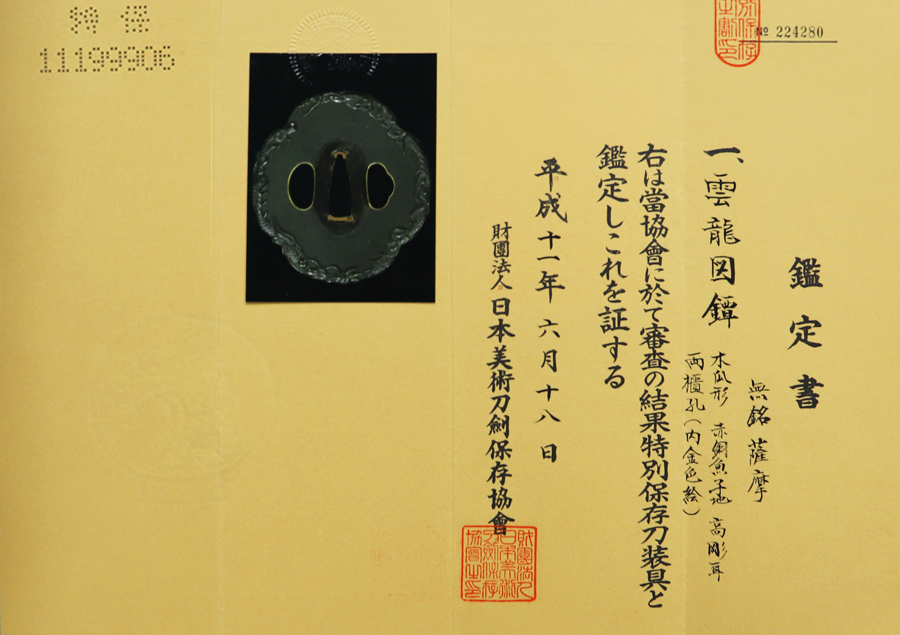 鑑定書
無銘 薩摩
一、雲龍図鐔
木瓜形 赤銅魚子地 高彫耳
両櫃孔(内金色絵)
右は當協會に於て審査の結果特別保存刀装具と
鑑定しこれを証する
平成十一年 六月十八日
財團法人 日本美術刀劍保存協會
№ 224280
特 保
11199906